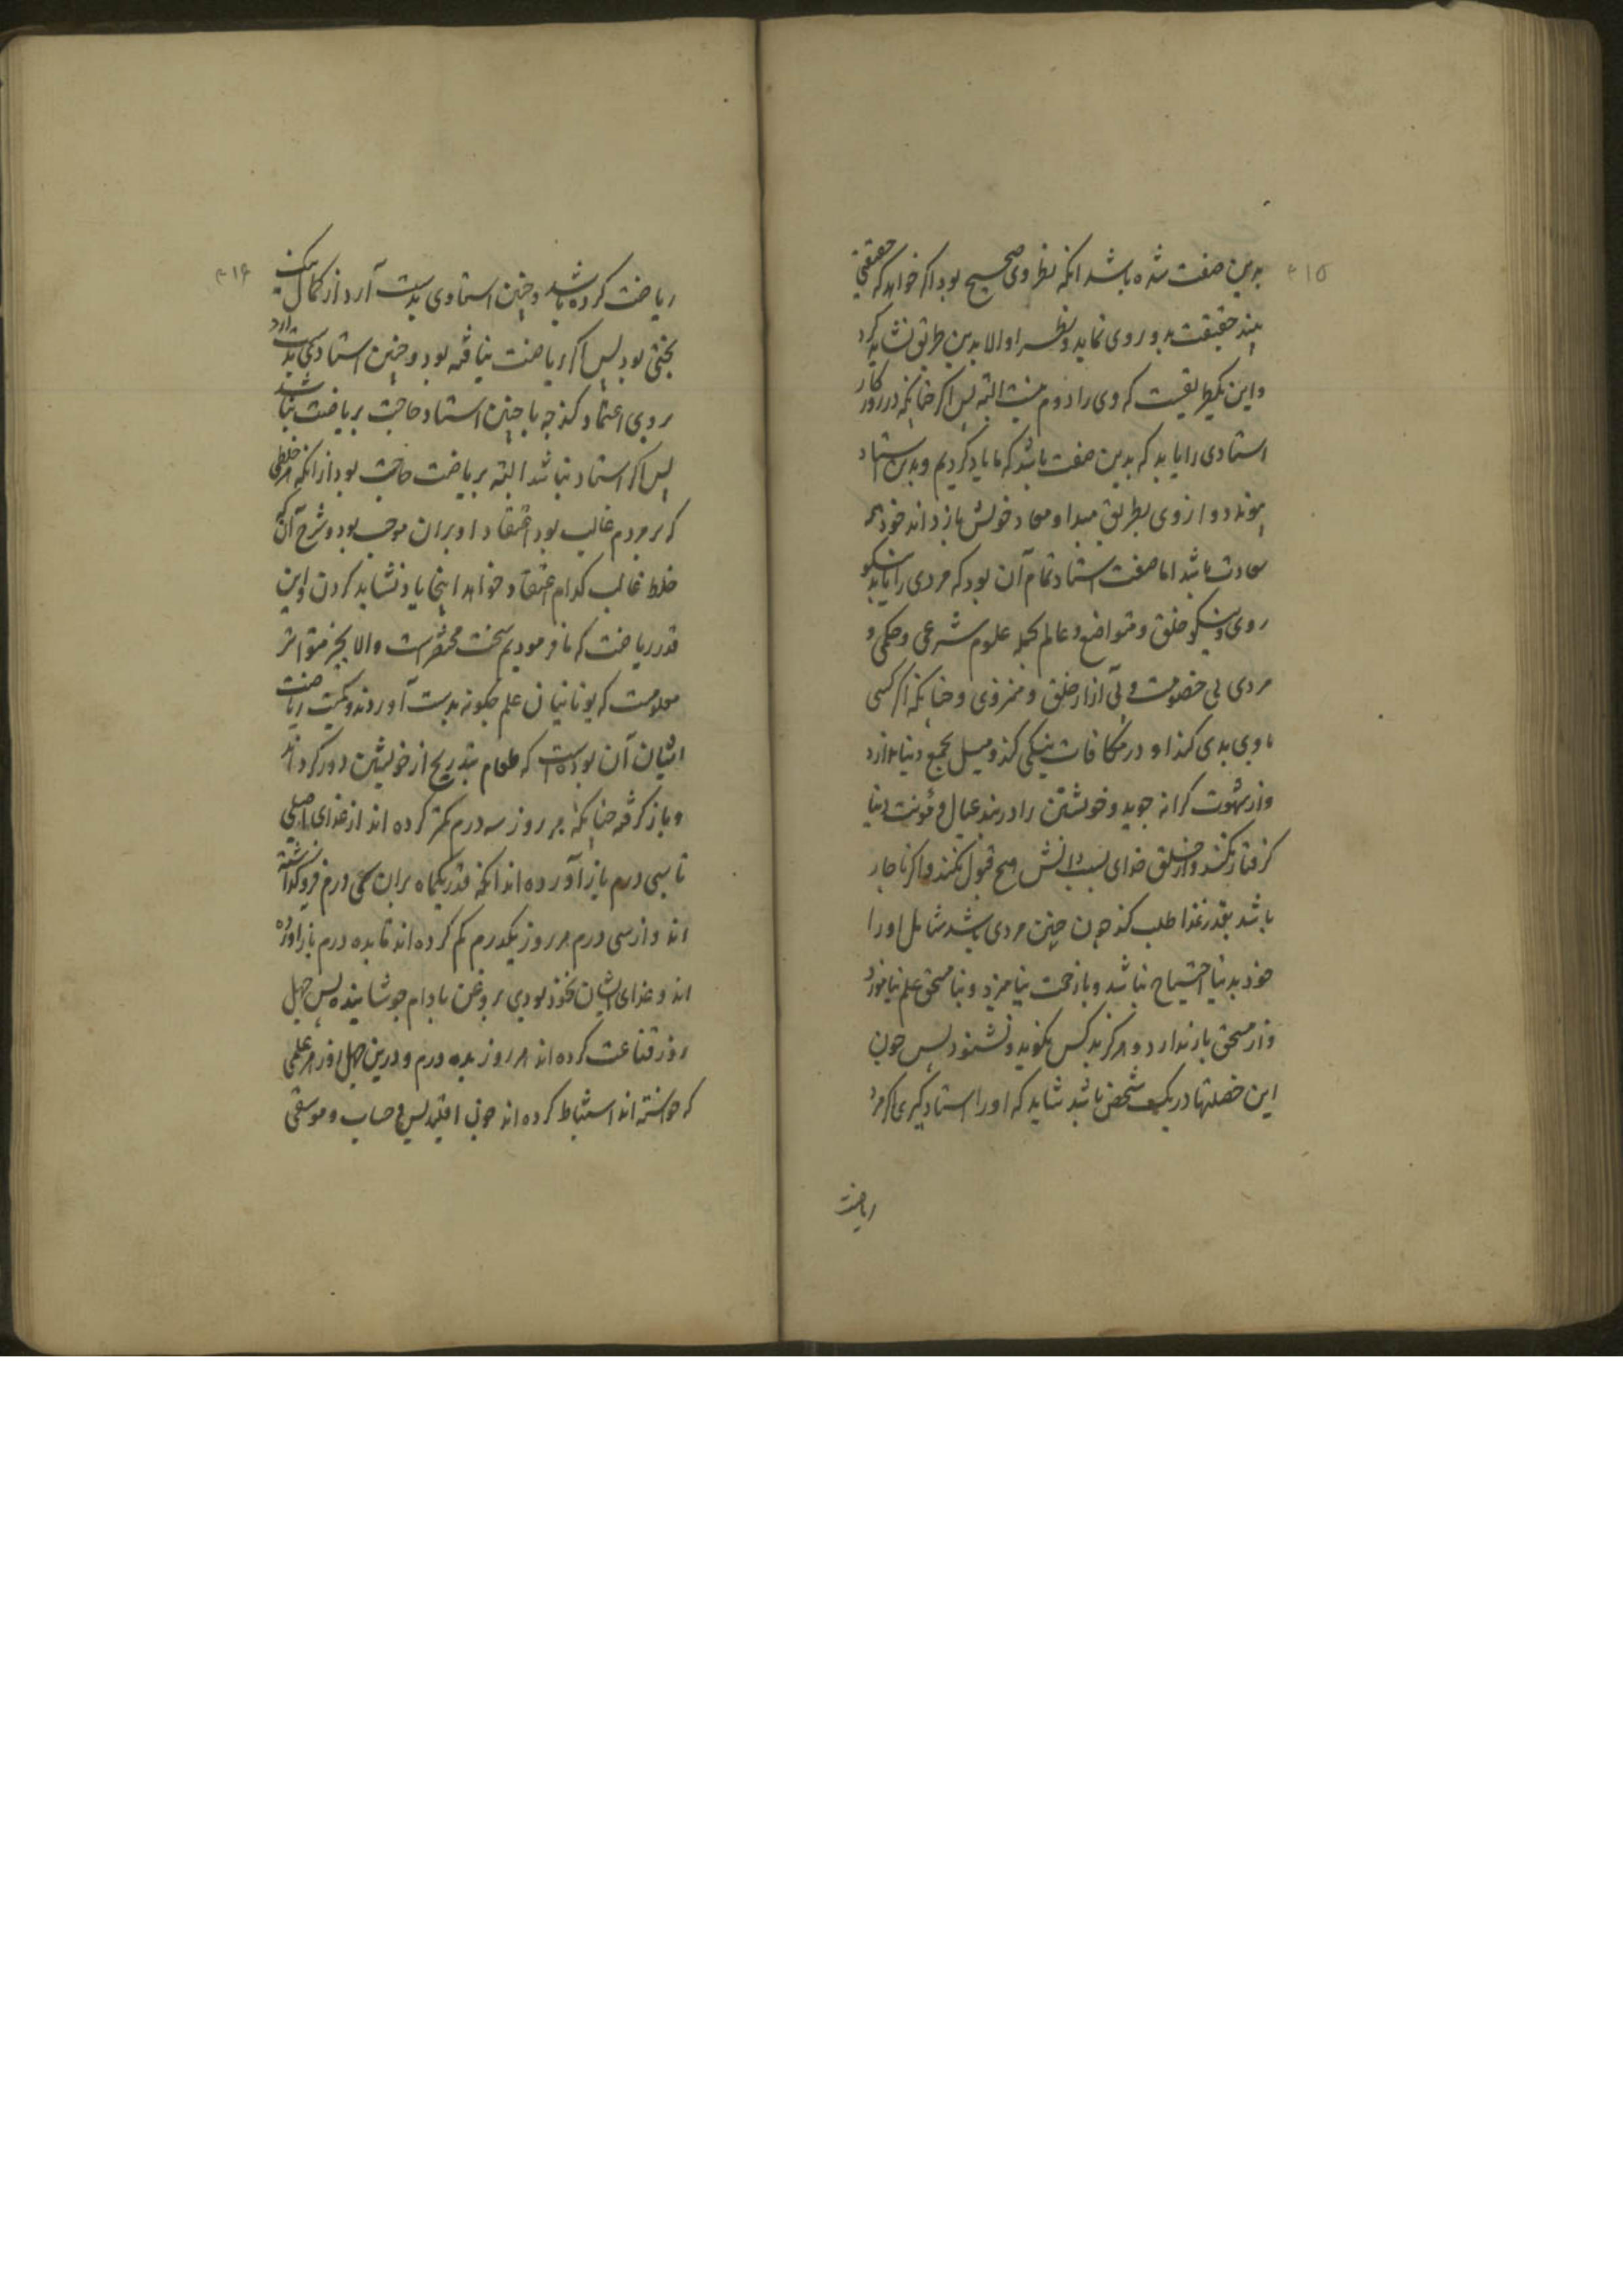 ۳۱۵
بدین صفت شده باشد انکه نظر وی صحیح بود اکر خواهد که حقیقتی
بیند حقیقت بدو روی نماید و نظر او الا بدین طریق نشاید کرد
و این یکطریقیست که وی را دوم نیست البته پس اکر چنانکه در روزکار
استادی را یابد که بدین صفت باشد که ما یاد کردیم و بدین استاد
پیوندد و از وی بطریق مبدا و معاد خویش باز داند خود همه
سعادت باشد اما صفت استاد تمام آن بود که مردی را یابد نیکو
روی و نیکو خلق و متواضع و عالم بجمله علوم شرعی و حکمی و
مردی بی خصومت و بی آزار خلق و منزوی و چنانکه اکر کسی
با وی بدی کند او در مکافات نیکی کند و میل بجمع دنیا ندارد
و از شهوت کرانه جوید و خویشتن را در بند عیال و مؤنت دنیا
کرفتار نکند و از خلق خدای بسبب دانش هیچ قبول نکند و اکر ناچار
باشد بقدر غذا طلب کند چون چنین مردی باشد شامل او را
خود بدنیا احتیاج نباشد و با زحمت نیامیزد و بنا مستحق علم نیاموزد
و از مستحق باز ندارد و هرکز بد کس نکوید و نشنود پس چون
این خصلتها در یک شخص باشد شاید که او را استاد کیری اکر مرد
ریاضت
۳۱۶
ریاضت کرده باشد و چنین استادی بدست آرد از کمال نیک
بختی بود پس اکر ریاضت نیافته بود و چنین استادی بدست آرد
بر وی اعتماد کند چه با چنین استاد حاجت بریاضت نباشد
پس اکر استاد نباشد البته بریاضت حاجت بود از انکه هر خلطی
که بر مردم غالب بود اعتقاد او بران موجب بود و شرح آن که
خلط غالب کدام اعتقاد خواهد اینجا یاد نشاید کردن و این
قدر ریاضت که ما فرمودیم سخت مختصر است و الا بخبر متواتر
معلومست که یونانیان علم چکونه بدست آوردند و کمیت ریاضت
ایشان آن بوده است که طعام بتدریج از خویشتن دور کرده اند
و باز کرفته چنانکه هر روز سه درم کمتر کرده اند از غذای اصلی
تا بسی درم باز آورده اند انکه قدر یکماه بران سی درم فرو کذاشته
اند و از سی درم هر روز یکدرم کم کرده اند تا بده درم باز آورده
اند و غذای ایشان نخود بودی بروغن بادام جوشانیده پس چهل
روز قناعت کرده اند هر روز بده درم و درین چهل روز هر علمی
که خواسته اند استنباط کرده اند چون اقلیدس و حساب و موسقی